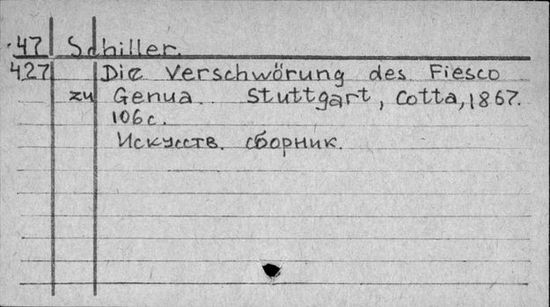 47 Schiller.
427 Die Verschwörung des Fiesco
zu Genua. Stuttgart, Cotta, 1867.
106 с.
Искусств. сборник.